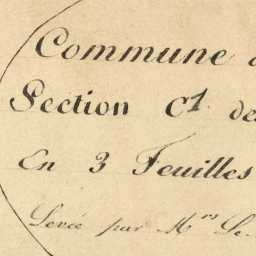 Commune
Section C1 de
En 3 Feuilles
Levée par Mrs Le